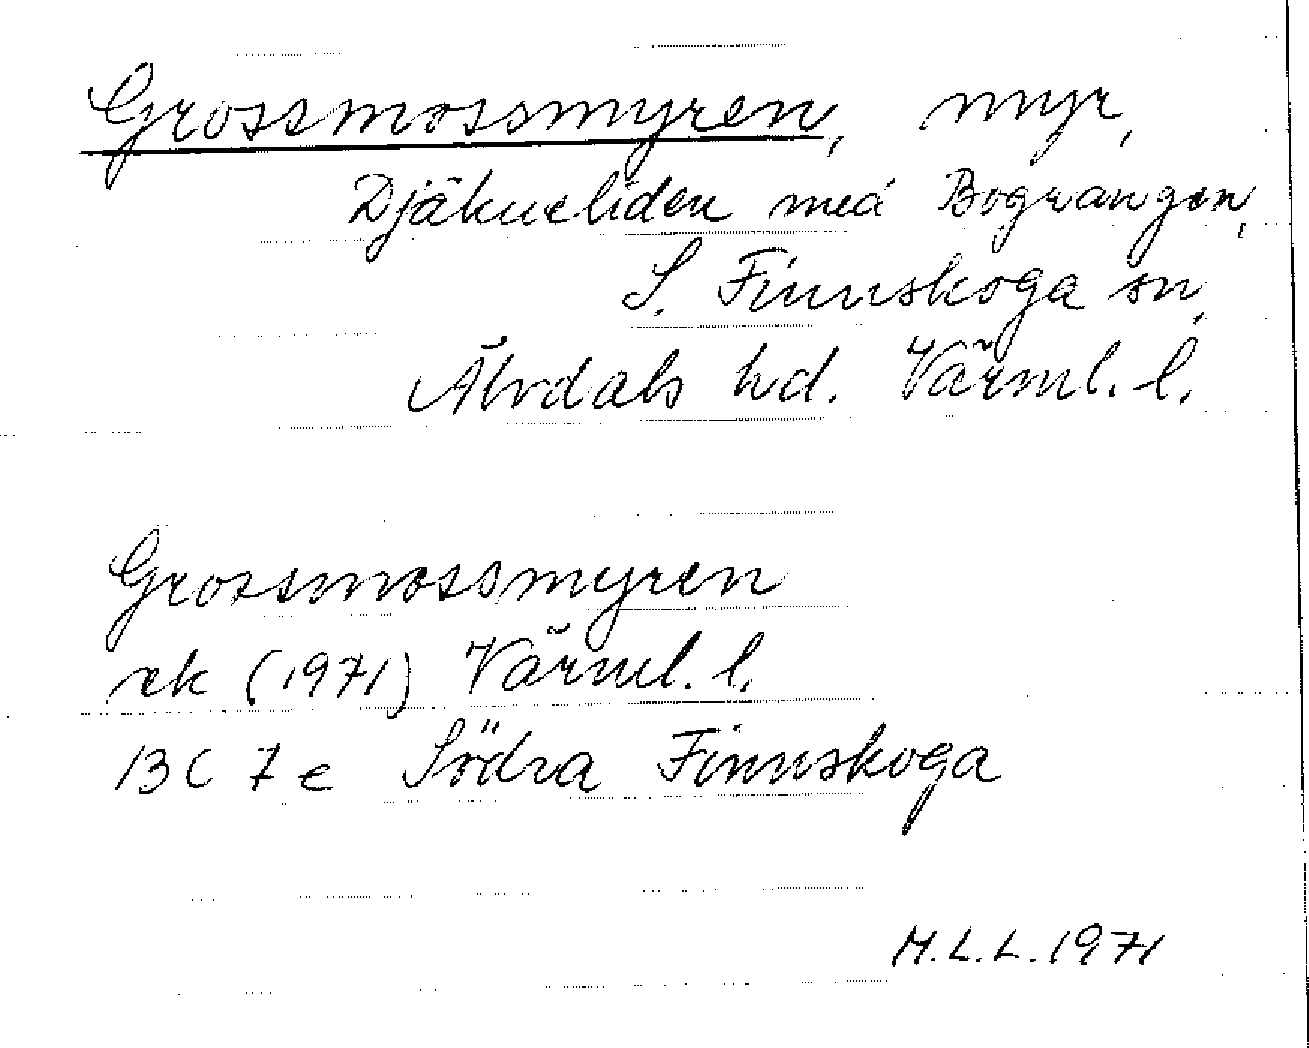 Grossmossmyren, myr,
Djäkneliden med Bograngen,
S. Finnskoga sn,
Älvdals hd. Värml. l.
Grossmossmyren
ek (1971) Värml. l.
13 C 7 e Södra Finnskoga
M.L.L. 1971